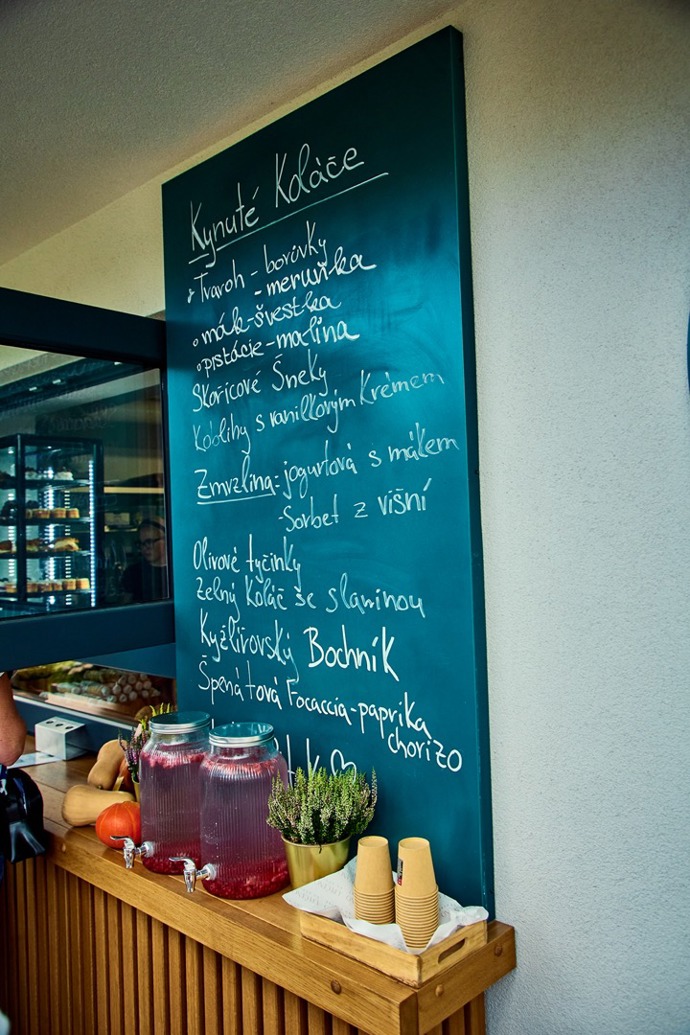 Kynuté Koláče
Tvaroh - borůvky
- meruňka
mák-švestka
pistácie-malina
Skořicové Šneky
Koblihy s vanilkovým Krémem
Zmrzlina: jogurtová s mákem
-Sorbet z višní
Olivové tyčinky
Zelný Koláč se slaninou
Kyžlírovský Bochník
Špenátová Focaccia-paprika
chorizo